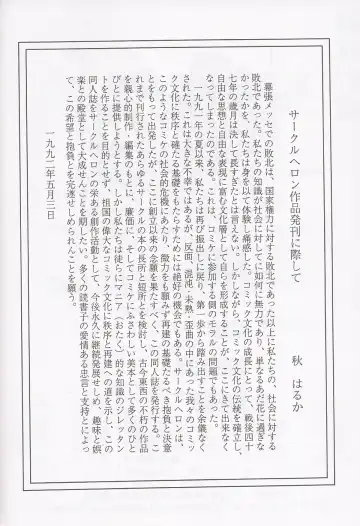 サークルヘロン作品発刊に際して
秋　はるか
幕張メッセでの敗北は、国家権力に対する敗北であった以上に私たちの、社会に対する
敗北であった。私たちの知識が社会に対して如何に無力であり、単なるあだ花に過ぎな
かったかを、私たちは身を以て体験し痛感した。コミック文化の成長にとって、戦後四十
七年の歳月は決して長すぎたとは言えない。しかしながら、コミック文化の伝統を確立し、
自由な思想と自由な表現に富む文化層として自らを形成することが、ここにきて出来なく
なってしまったのである。これは、コミケに参加する側のモラルの問題でもあった。
一九九一年の夏以来、私たちは再び振出しに戻り、第一歩から踏み出すことを余儀なく
された。これは大きな不幸ではあるが、反面、混沌・未熟・歪曲の中にあった我々のコミッ
ク文化に秩序と確たる基礎をもたらすためには絶好の機会でもある。サークルヘロンは、
このようなコミケの社会的危機にあたり、微力をも顧みず再建の礎石たるべき抱負と決意
とをもって出発したが、ここに創立以来の念願を果たすべく、この同人誌を発行する。こ
れまで刊行されたあらゆるコミック本の長所と短所とを検討し、古今東西の不朽の作品
を良心的制作・編集のもとに、廉価に、そしてコミケにふさわしい美本として多くのひと
びとに提供しようとする。しかし私たちは徒らにマニア（おたく）的な知識のジレッタン
トを作ることを目的とせず、祖国の偉大なコミック文化に秩序と再建への道を示し、この
同人誌をサークルヘロンの栄ある創作活動として、今後永久に継続発展せしめ、趣味と娯
楽との殿堂として大成せんことを期したい。多くの読書子の愛情ある忠言と支持とによっ
て、この希望と抱負とを完遂せしめられんことを願う。
一九九二年五月三日